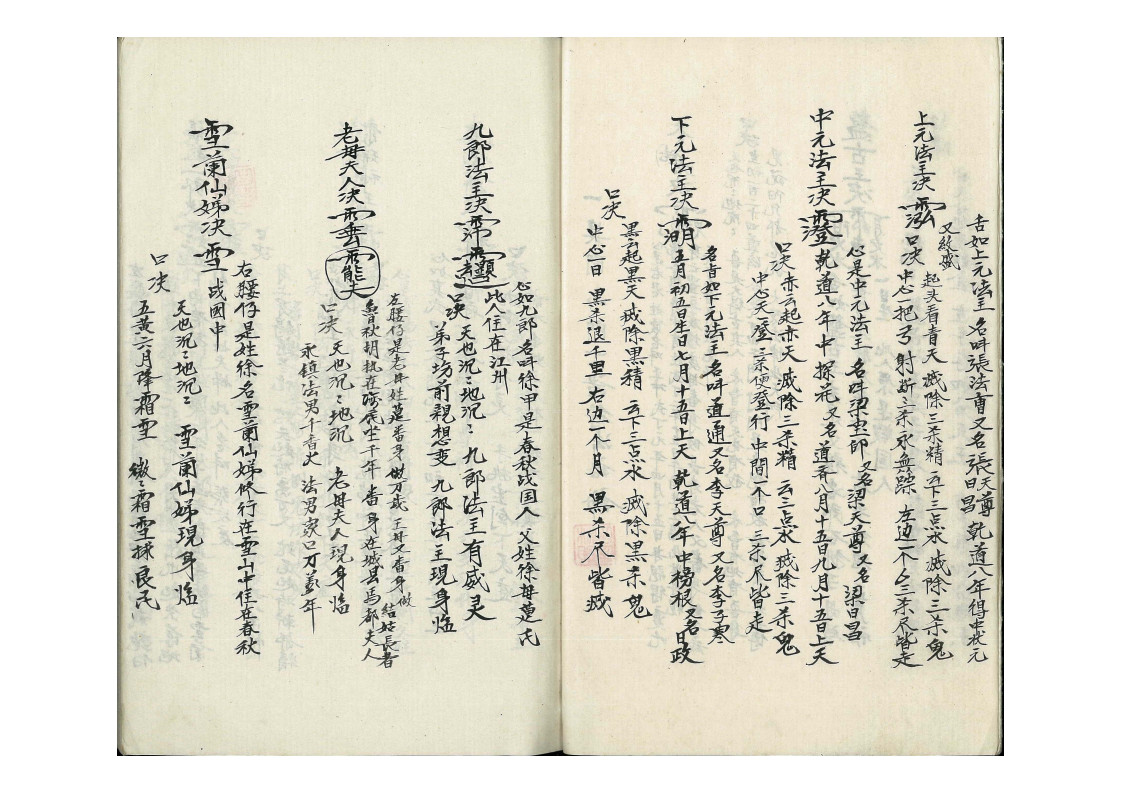 舌如上元法主名呌張法曺又名張天尊日昌乾道八年得中狀元
又絵戲
上元法主決
口决
起头看青天滅除三杀精𠀋下三点水滅除三杀鬼
中心一把弓射斩三杀永無踪左边一个厶三杀尽皆走
心是中元法主名呌梁里卯又名梁天尊又名梁日昌
中元法主决乾道八年中探花又名道斉八月十五日九月十五日上天
口决
赤云起赤天滅除三杀精云三点水滅除三杀鬼
中心天登三杀便登行中間一个口三杀尽皆走
名旨如下元法主名呌道通又名李天尊又名李子寒
下元法主决五月初五日生日七月十五日上天乾道八年中榜根又名日政
口决
黑云起黑天滅除黑精云下三点水滅除黑杀鬼
中心一日黑杀退千里右边一个月黑杀尽皆滅
心如九郎名呌徐甲是春秋战国人父姓徐母範氏
九郎法主决
此人住在江州
口决
天也沉〻地沉〻九郎法主有威灵
弟子坊前親想变九郎法主現身临
老毋夫人决
左腰仔是老毋姓範番身做万歲王母又番身做
結姑長者
魯秋胡执在殘尾坐千年番身在城县馬都夫人
口决
天也沉〻地沉老毋夫人現身临
永鎮法男千香火法男家口万盖年
雪蘭仙娣决雪
战國中
右腰仔是姓徐名雪蘭仙娣修行在雪山中住在春秋
口决
天也沉〻地沉〻雪蘭仙娣現身临
五黄六月降霜雪繳〻霜雪採良民